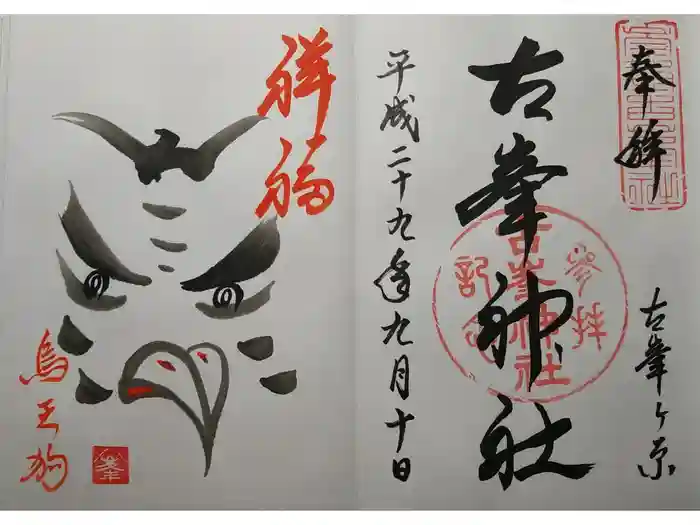 奉拝
古峯ヶ原
古峯神社
参拝
古峯神社
記念
平成二十九年九月十日
祥福
烏天狗
峯